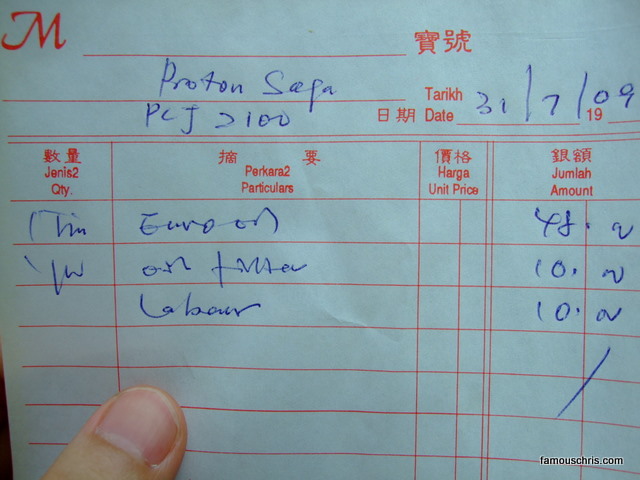 M 寶號
Proton Saga
PCJ 2100
Tarikh
日期 Date 31/7/09 19
數量 摘要 價格 銀額
Jenis2 Perkara2 Harga Jumlah
Qty. Particulars Unit Price Amount
1 Tin Euro oil 48.00
oil filter 10.00
Labour 10.00
famouschris.com